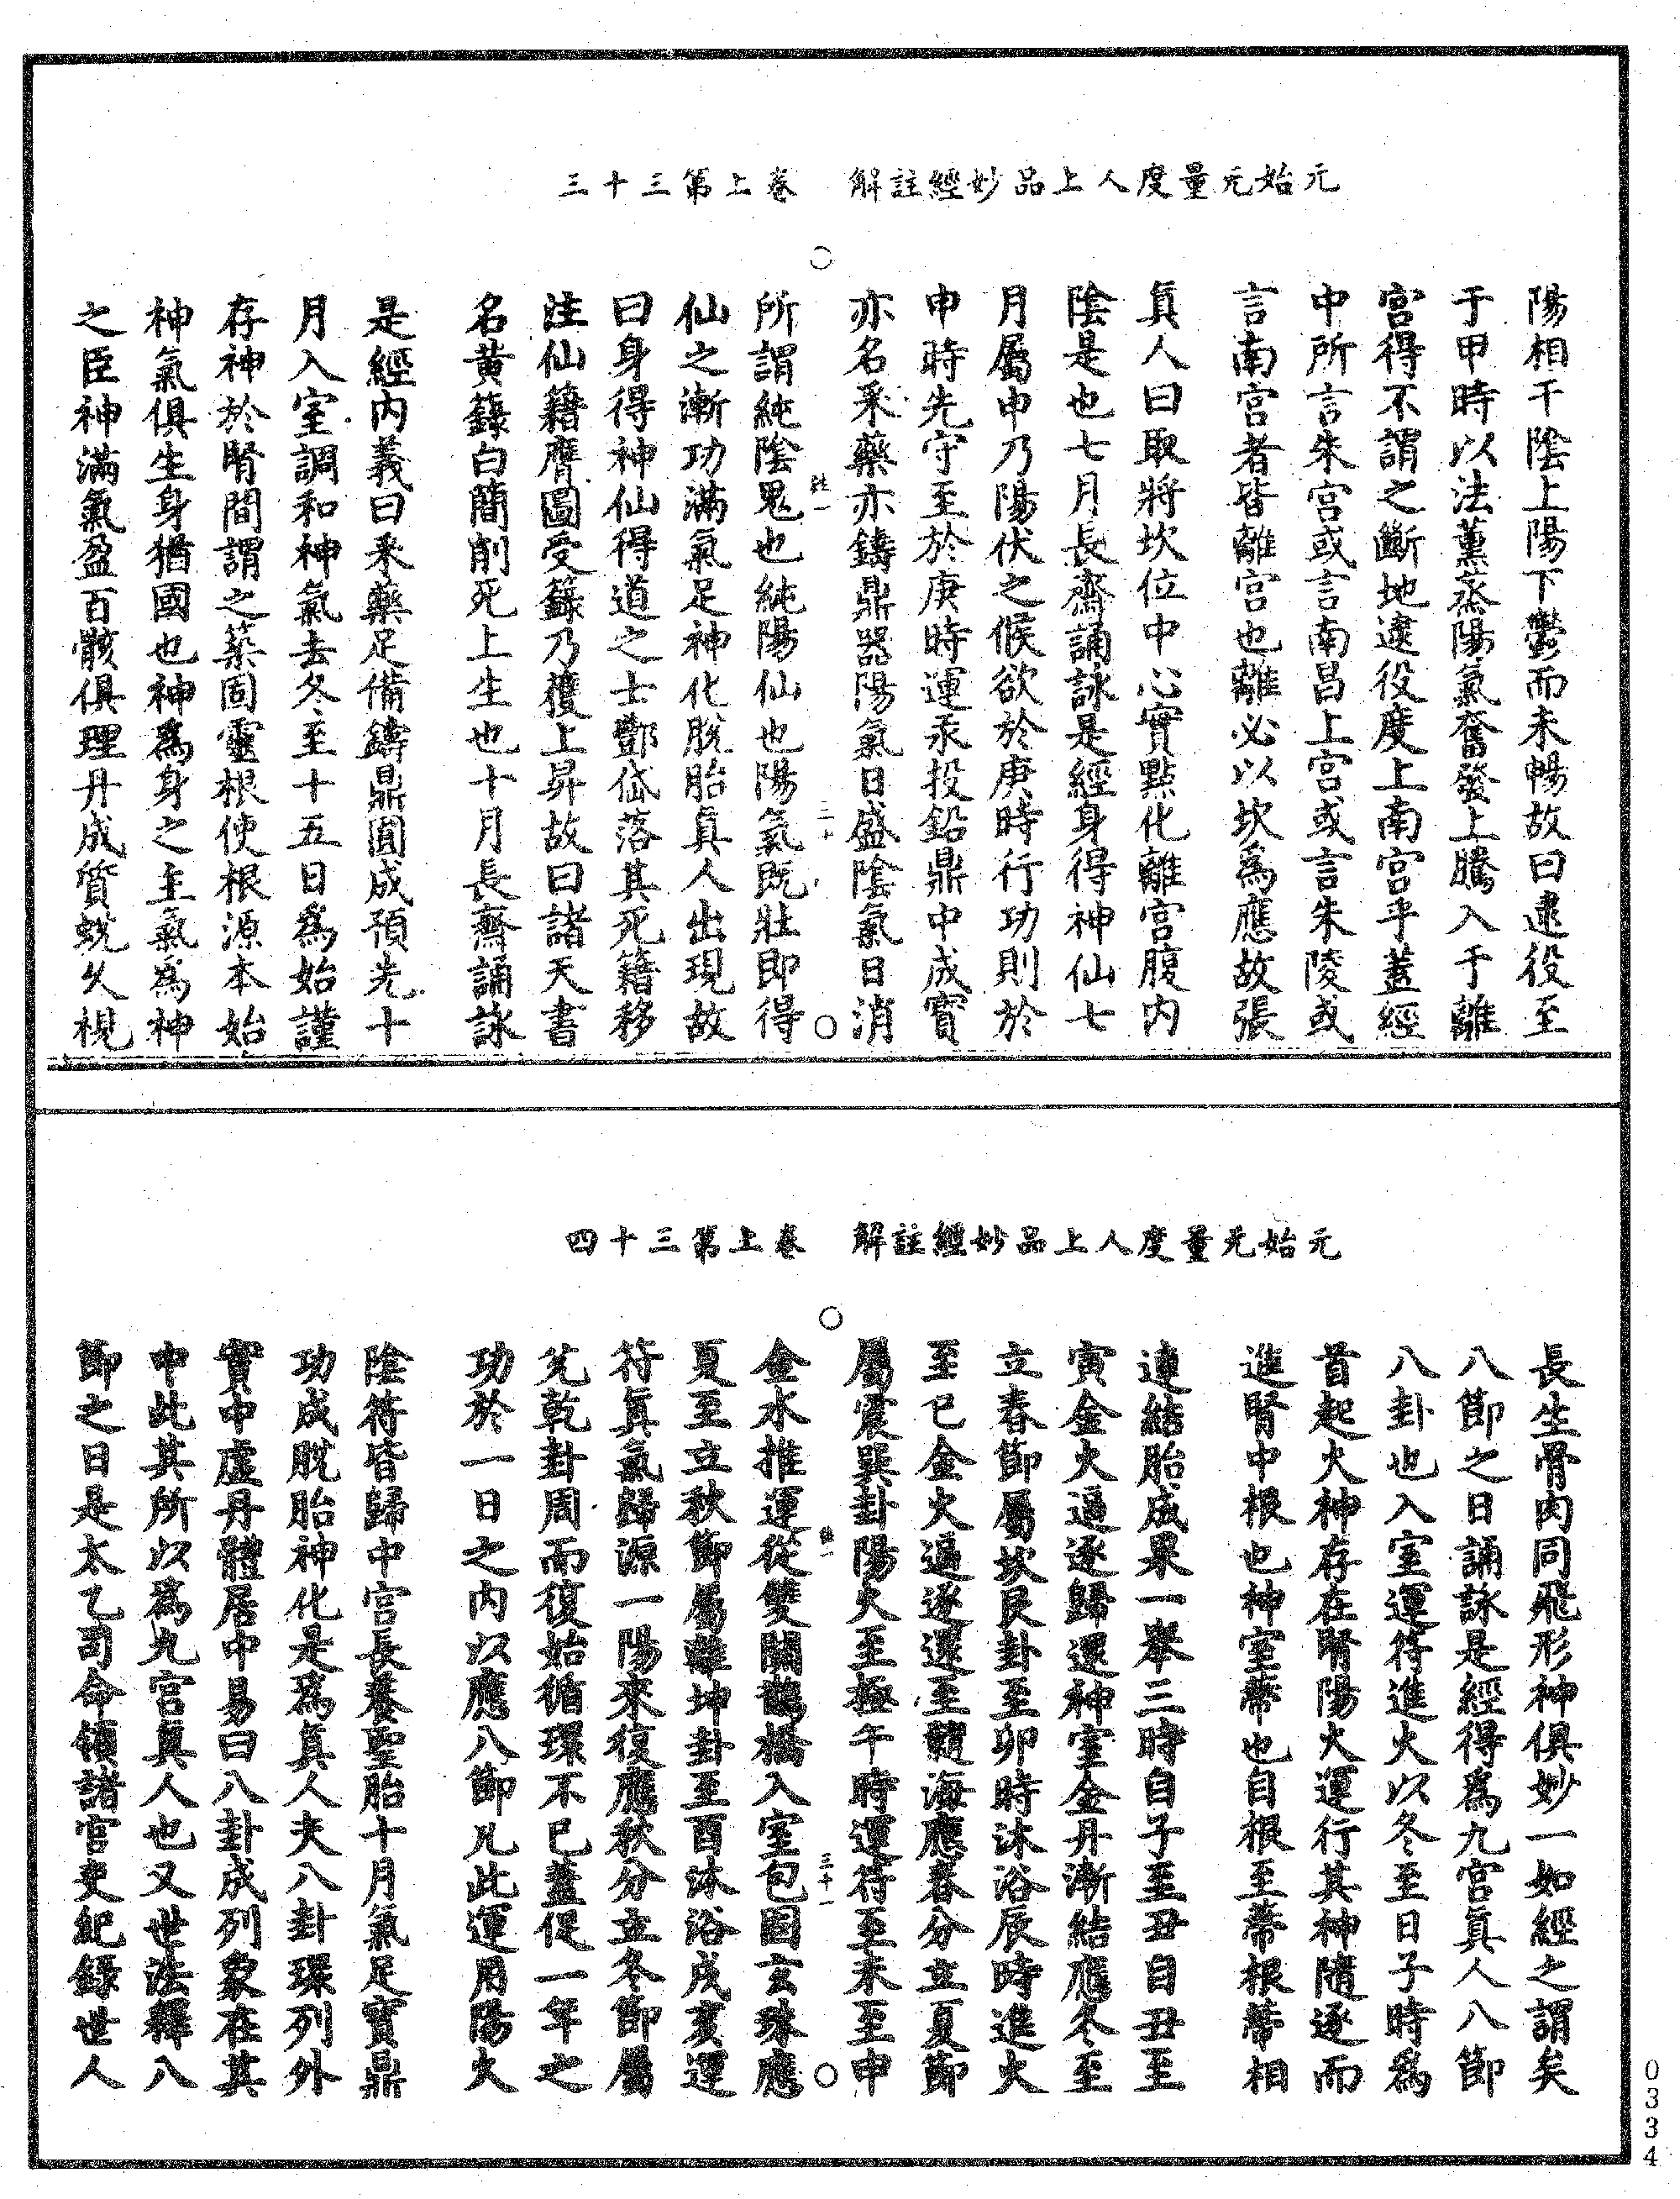 元始无量度人上品妙經註解　卷上第三十三
陽相干陰上陽下鬱而未暢故曰逮役至
于甲時以法薰蒸陽氣奮發上騰入于離
宮得不謂之斷地逮役度上南宮乎蓋經
中所言朱宮或言南昌上宮或言朱陵或
言南宮者皆離宮也離必以坎爲應故張
真人曰取將坎位中心實點化離宮腹內
陰是也七月長齋誦詠是經身得神仙七
月屬申乃陽伏之候欲於庚時行功則於
申時先守至於庚時運汞投鉛鼎中成寶
亦名釆藥亦鑄鼎器陽氣日盛陰氣日消
姓一
三十
所謂純陰鬼也純陽仙也陽氣既壯即得
仙之漸功滿氣足神化脫胎真人出現故
曰身得神仙得道之士酆岱落其死籍移
注仙籍膺圖受籙乃獲上昇故曰諸天書
名黄籙白簡削死上生也十月長齋誦詠
是經內義曰釆藥足備鑄鼎圓成預先十
月入室調和神氣去冬至十五日爲始謹
存神於腎間謂之築固靈根使根源本始
神氣俱生身猶國也神爲身之主氣爲神
之臣神滿氣盈百骸俱理丹成質蛻久視
元始无量度人上品妙經註解　卷上第三十四
長生骨肉同飛形神俱妙一如經之謂矣
八節之日誦詠是經得爲九宮真人八節
八卦也入室運符進火以冬至日子時爲
首起火神存在腎陽火運行其神隨逐而
進腎中根也神室蒂也自根至蒂根蒂相
連結胎成果一舉三時自子至丑自丑至
寅金火逼逐歸還神室金丹漸結應冬至
立春節屬坎艮卦至卯時沐浴辰時進火
至巳金火逼逐還至髓海應春分立夏節
屬震巽卦陽火至極午時運符至未至申
三十一
金水推運從雙關鵲橋入室包固玄珠應
夏至立秋節屬離坤卦至酉沐浴戌亥運
符真氣歸源一陽來復應秋分立冬節屬
兌乾卦周而復始循環不已蓋促一年之
功於一日之內以應八節凡此運用陽火
陰符皆歸中宮長養聖胎十月氣足寶鼎
功成脫胎神化是爲真人夫八卦環列外
實中虛丹體居中易曰八卦成列象在其
中此其所以爲九宮真人也又世法釋八
節之日是太乙司命領諸官吏紀錄世人
0334